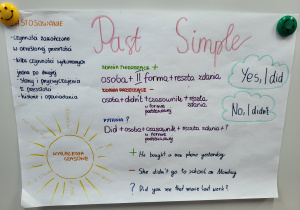 ZASTOSOWANIE
- czynności zakończone
w określonej przeszłości
- kilka czynności wykonanych
jedna po drugiej
- stany i przyzwyczajenia
z przeszłości
- historie i opowiadania
Past Simple
ZDANIA TWIERDZĄCE
osoba + II forma + reszta zdania
ZDANIA PRZECZĄCE
osoba + didn't + czasownik + reszta
w formie podstawowej
zdania
PYTANIA ?
Did + osoba + czasownik + reszta zdania + ?
w formie podstawowej
WYRAŻENIA
CZASOWE
Yes, I did
No, I didn't
+ He bought a new phone yesterday.
- She didn't go to school on Monday
? Did you see that movie last week?